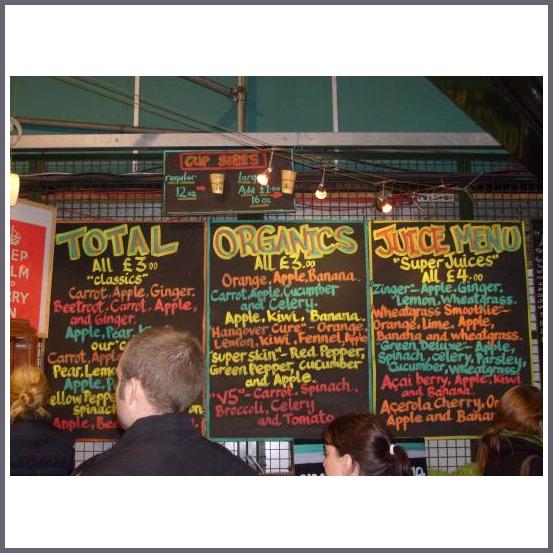 CUP SIZES
regular
12 oz
large
Add £1.00
16 oz
TOTAL
All £3.00
"classics"
Carrot, Apple, Ginger.
Beetroot, Carrot, Apple,
and Ginger.
Apple, Pear,
our
Carrot, Apple
Pear, Lemo
Apple, P
ellow Peppe
Spinac
Apple, Bee
ORGANICS
All £3.00
Orange, Apple, Banana
Carrot, Apple, Cucumber
and Celery.
Apple, Kiwi, Banana.
"Hangover Cure" - Orange,
Lemon, Kiwi, Fennel, Apple
"super skin" - Red Pepper,
Green Pepper, Cucumber
and Apple.
"V5" - Carrot, Spinach,
Broccoli, Celery
and Tomato
JUICE MENU
"Super Juices"
All £4.00
Zinger - Apple, Ginger,
Lemon, Wheatgrass.
Wheatgrass Smoothie -
Orange, Lime, Apple,
Banana and wheatgrass.
Green Deluxe - Apple,
Spinach, celery, Parsley,
Cucumber, wheatgrass
Açai berry, Apple, Kiwi
and Banana.
Acerola Cherry, Or
Apple and Banan
EEP
LM
RRY